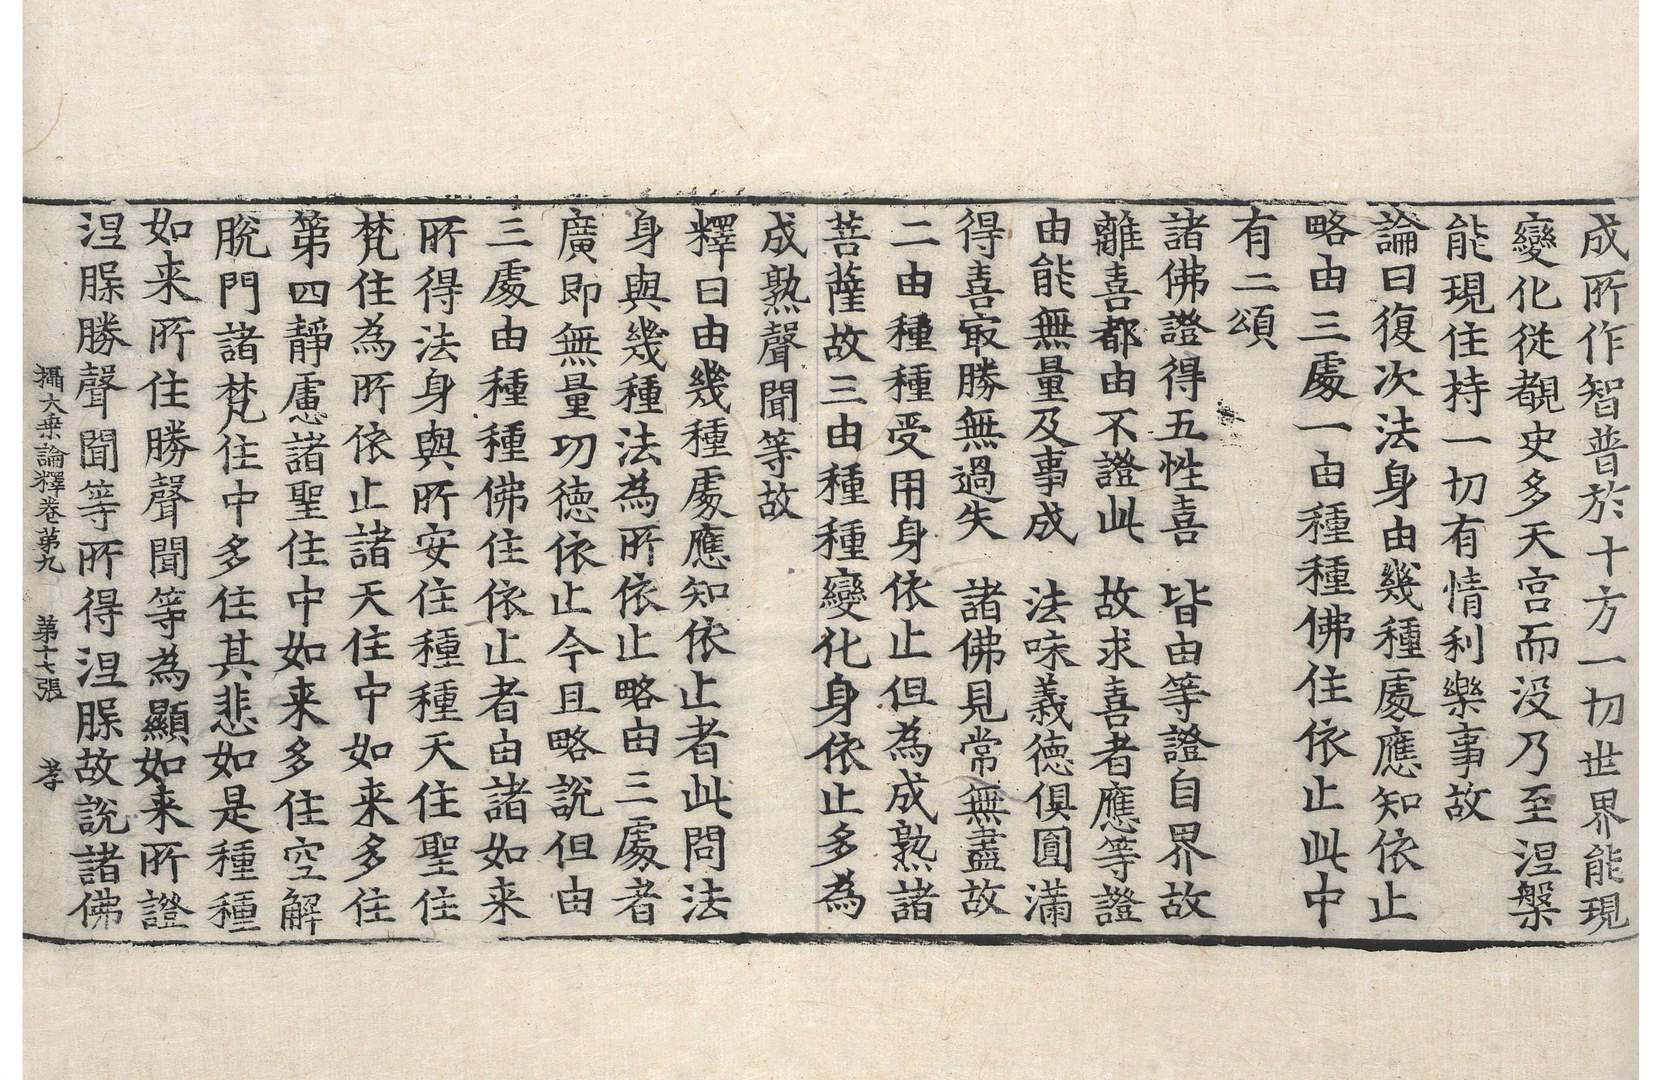 成所作智普於十方一切世界能現
變化從覩史多天宮而沒乃至涅槃
能現住持一切有情利樂事故
論曰復次法身由幾種處應知依止
略由三處一由種種佛住依止此中
有二頌
諸佛證得五性喜　皆由等證自界故
離喜都由不證此　故求喜者應等證
由能無量及事成　法味義德俱圓滿
得喜㝡勝無過失　諸佛見常無盡故
二由種種受用身依止但為成熟諸
菩薩故三由種種變化身依止多為
成熟聲聞等故
釋曰由幾種處應知依止者此問法
身與幾種法為所依止略由三處者
廣即無量功德依止今且略說但由
三處由種種佛住依止者由諸如来
所得法身與所安住種種天住聖住
梵住為所依止諸天住中如来多住
第四靜慮諸聖住中如来多住空解
脫門諸梵住中多住其悲如是種種
如来所住勝聲聞等為顯如来所證
涅槃勝聲聞等所得涅槃故說諸佛
攝大乗論釋卷第九　第十七張　孝